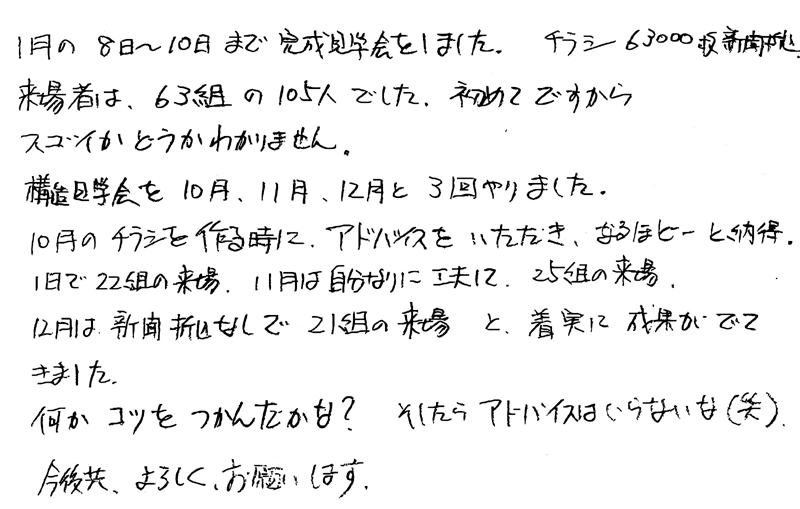 1月の 8日〜10日 まで 完成見学会をしました。 チラシ 63000枚 新聞折込.
来場者は、63組 の 105人 でした. 初めて ですから
スゴイか どうか わかりません。
構造見学会を 10月、11月、12月と 3回 やりました。
10月の チラシを 作る時に、アドバイスを いただき、なるほどー と納得.
1日で 22組の来場. 11月は 自分なりに 工夫して. 25組の来場.
12月は 新聞折込なしで 21組の来場 と、着実に 成果が でて
きました.
何か コツを つかんだかな? そしたら アドバイスは いらないな(笑).
今後共、よろしく、お願いします.